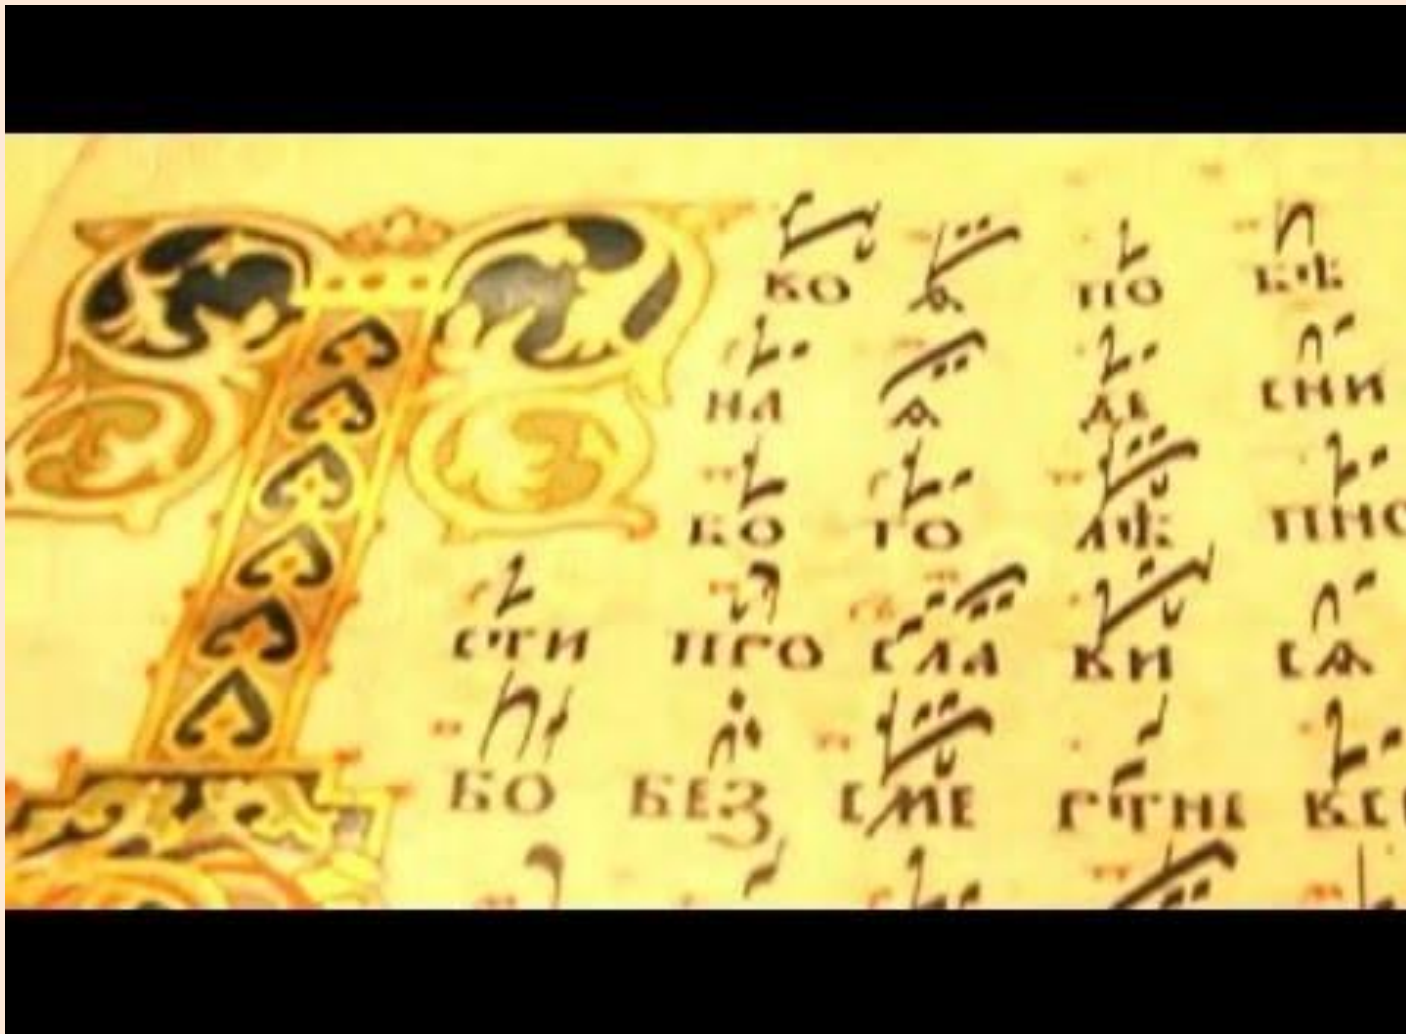 ВО Ѧ ПО БѢ
НА Ѧ ДЕ СНИ
ВО ГО ЛѢ ПНО
СТИ ПРО СЛА ВИ СѦ
БО БЕЗ СМЕ РТНЕ ВСЕ